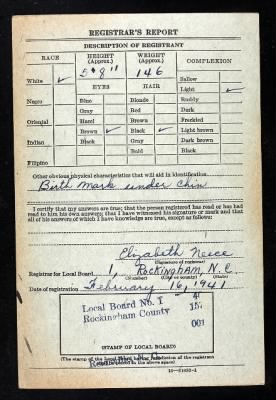 REGISTRAR'S REPORT
DESCRIPTION OF REGISTRANT
RACE HEIGHT (Approx.) WEIGHT (Approx.) COMPLEXION
5' 8" 146
White ✓ EYES HAIR Sallow
Light ✓
Negro Blue Blonde Ruddy
Gray Red Dark
Oriental Hazel Brown Freckled
Brown ✓ Black ✓ Light brown
Indian Black Gray Dark brown
Bald Black
Filipino
Other obvious physical characteristics that will aid in identification
Birth mark under chin
I certify that my answers are true; that the person registered has read or has had
read to him his own answers; that I have witnessed his signature or mark and that
all of his answers of which I have knowledge are true, except as follows:
Elizabeth Neece
(Signature of registrar)
Registrar for Local Board 1, Rockingham, N.C.
(Number) (City or county) (State)
Date of registration February 16, 1941
Local Board No. 1 4
Rockingham County 157
001
(STAMP OF LOCAL BOARD)
(The stamp of the Local Board having jurisdiction of the registrant